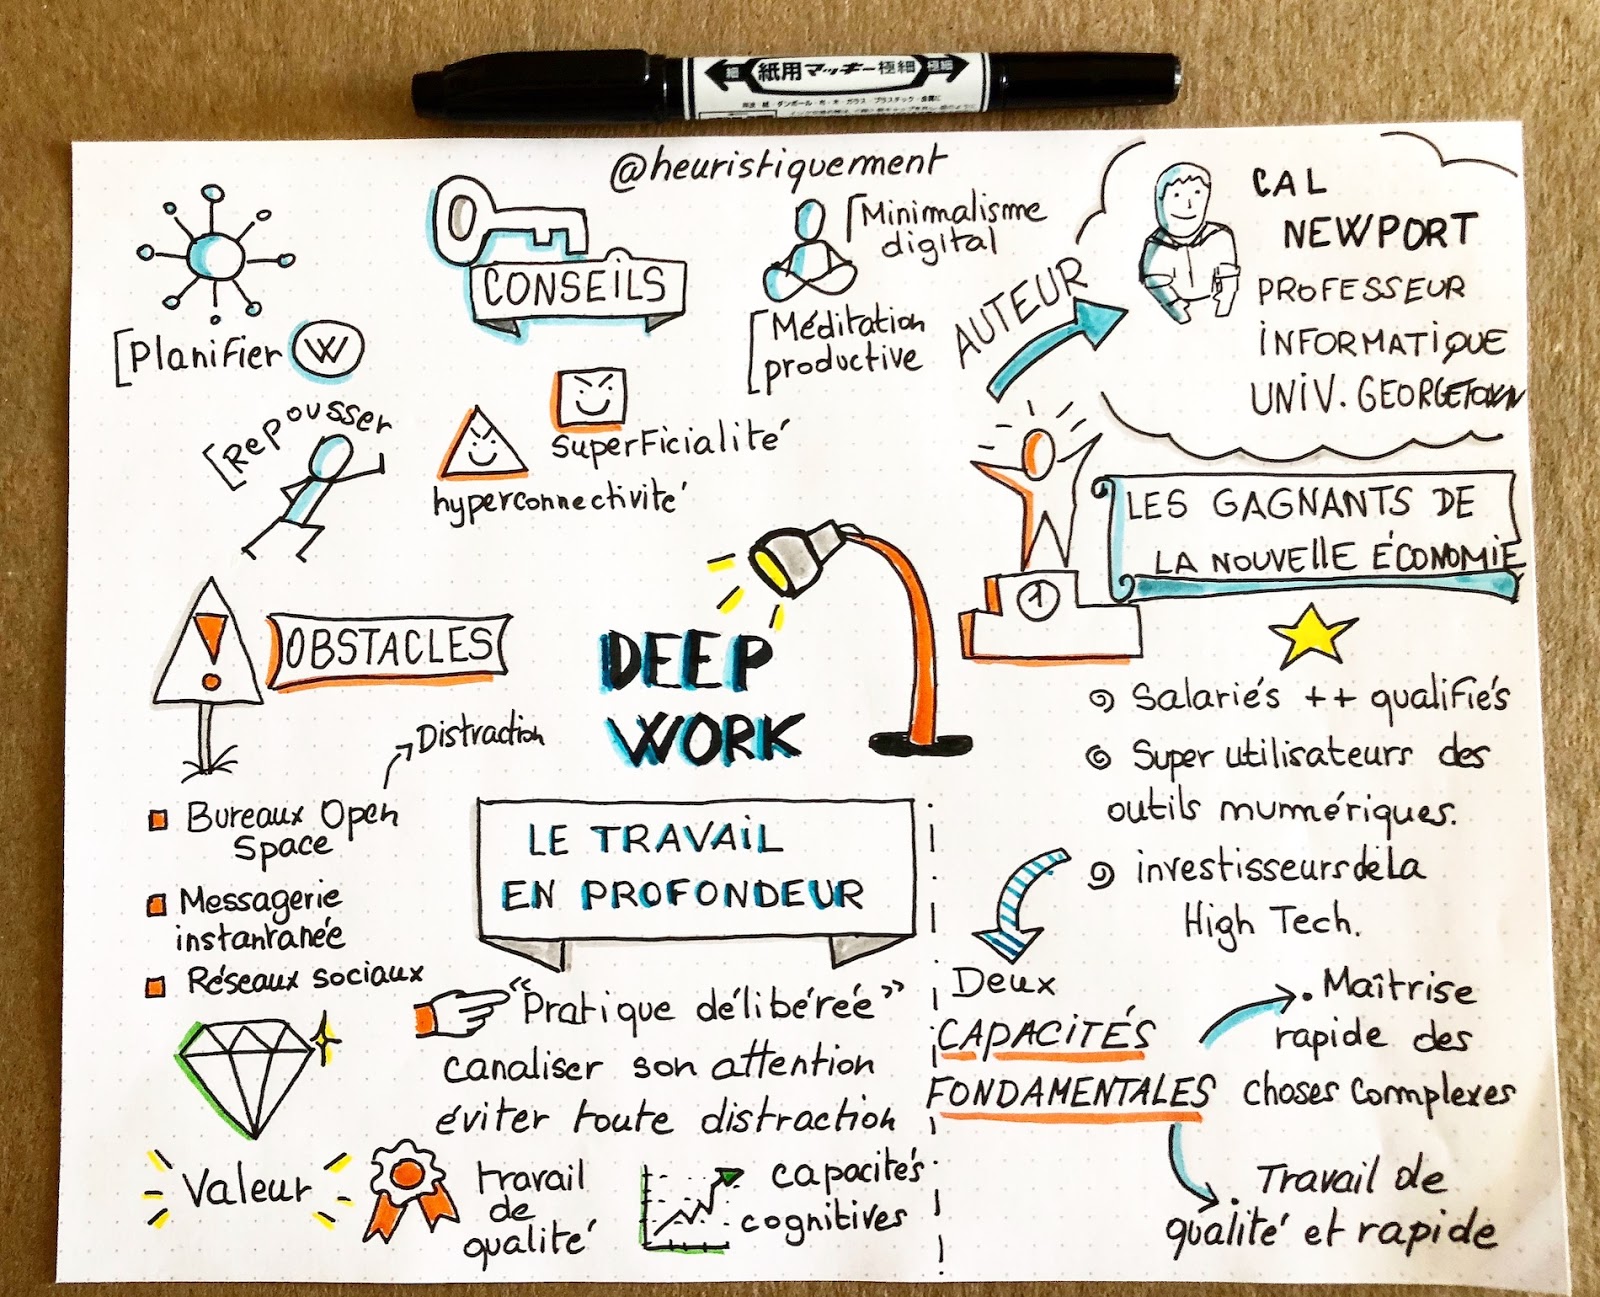 細 紙用マッキー極細 極細
@heuristiquement
CONSEILS
[Planifier W
[Repousser
superficialité
hyperconnectivité
[Minimalisme
digital
[Méditation
productive
AUTEUR
CAL
NEWPORT
PROFESSEUR
INFORMATIQUE
UNIV. GEORGETOWN
LES GAGNANTS DE
LA NOUVELLE ÉCONOMIE
1
Salariés ++ qualifiés
Super utilisateurs des
outils mumériques.
investisseurs de la
High Tech.
Deux
CAPACITÉS
FONDAMENTALES
. Maîtrise
rapide des
choses complexes
. Travail de
qualité et rapide
OBSTACLES
Distraction
Bureaux Open
Space
Messagerie
instantanée
Réseaux sociaux
DEEP
WORK
LE TRAVAIL
EN PROFONDEUR
“Pratique délibérée”
canaliser son attention
éviter toute distraction
Valeur
travail
de
qualité
capacités
cognitives